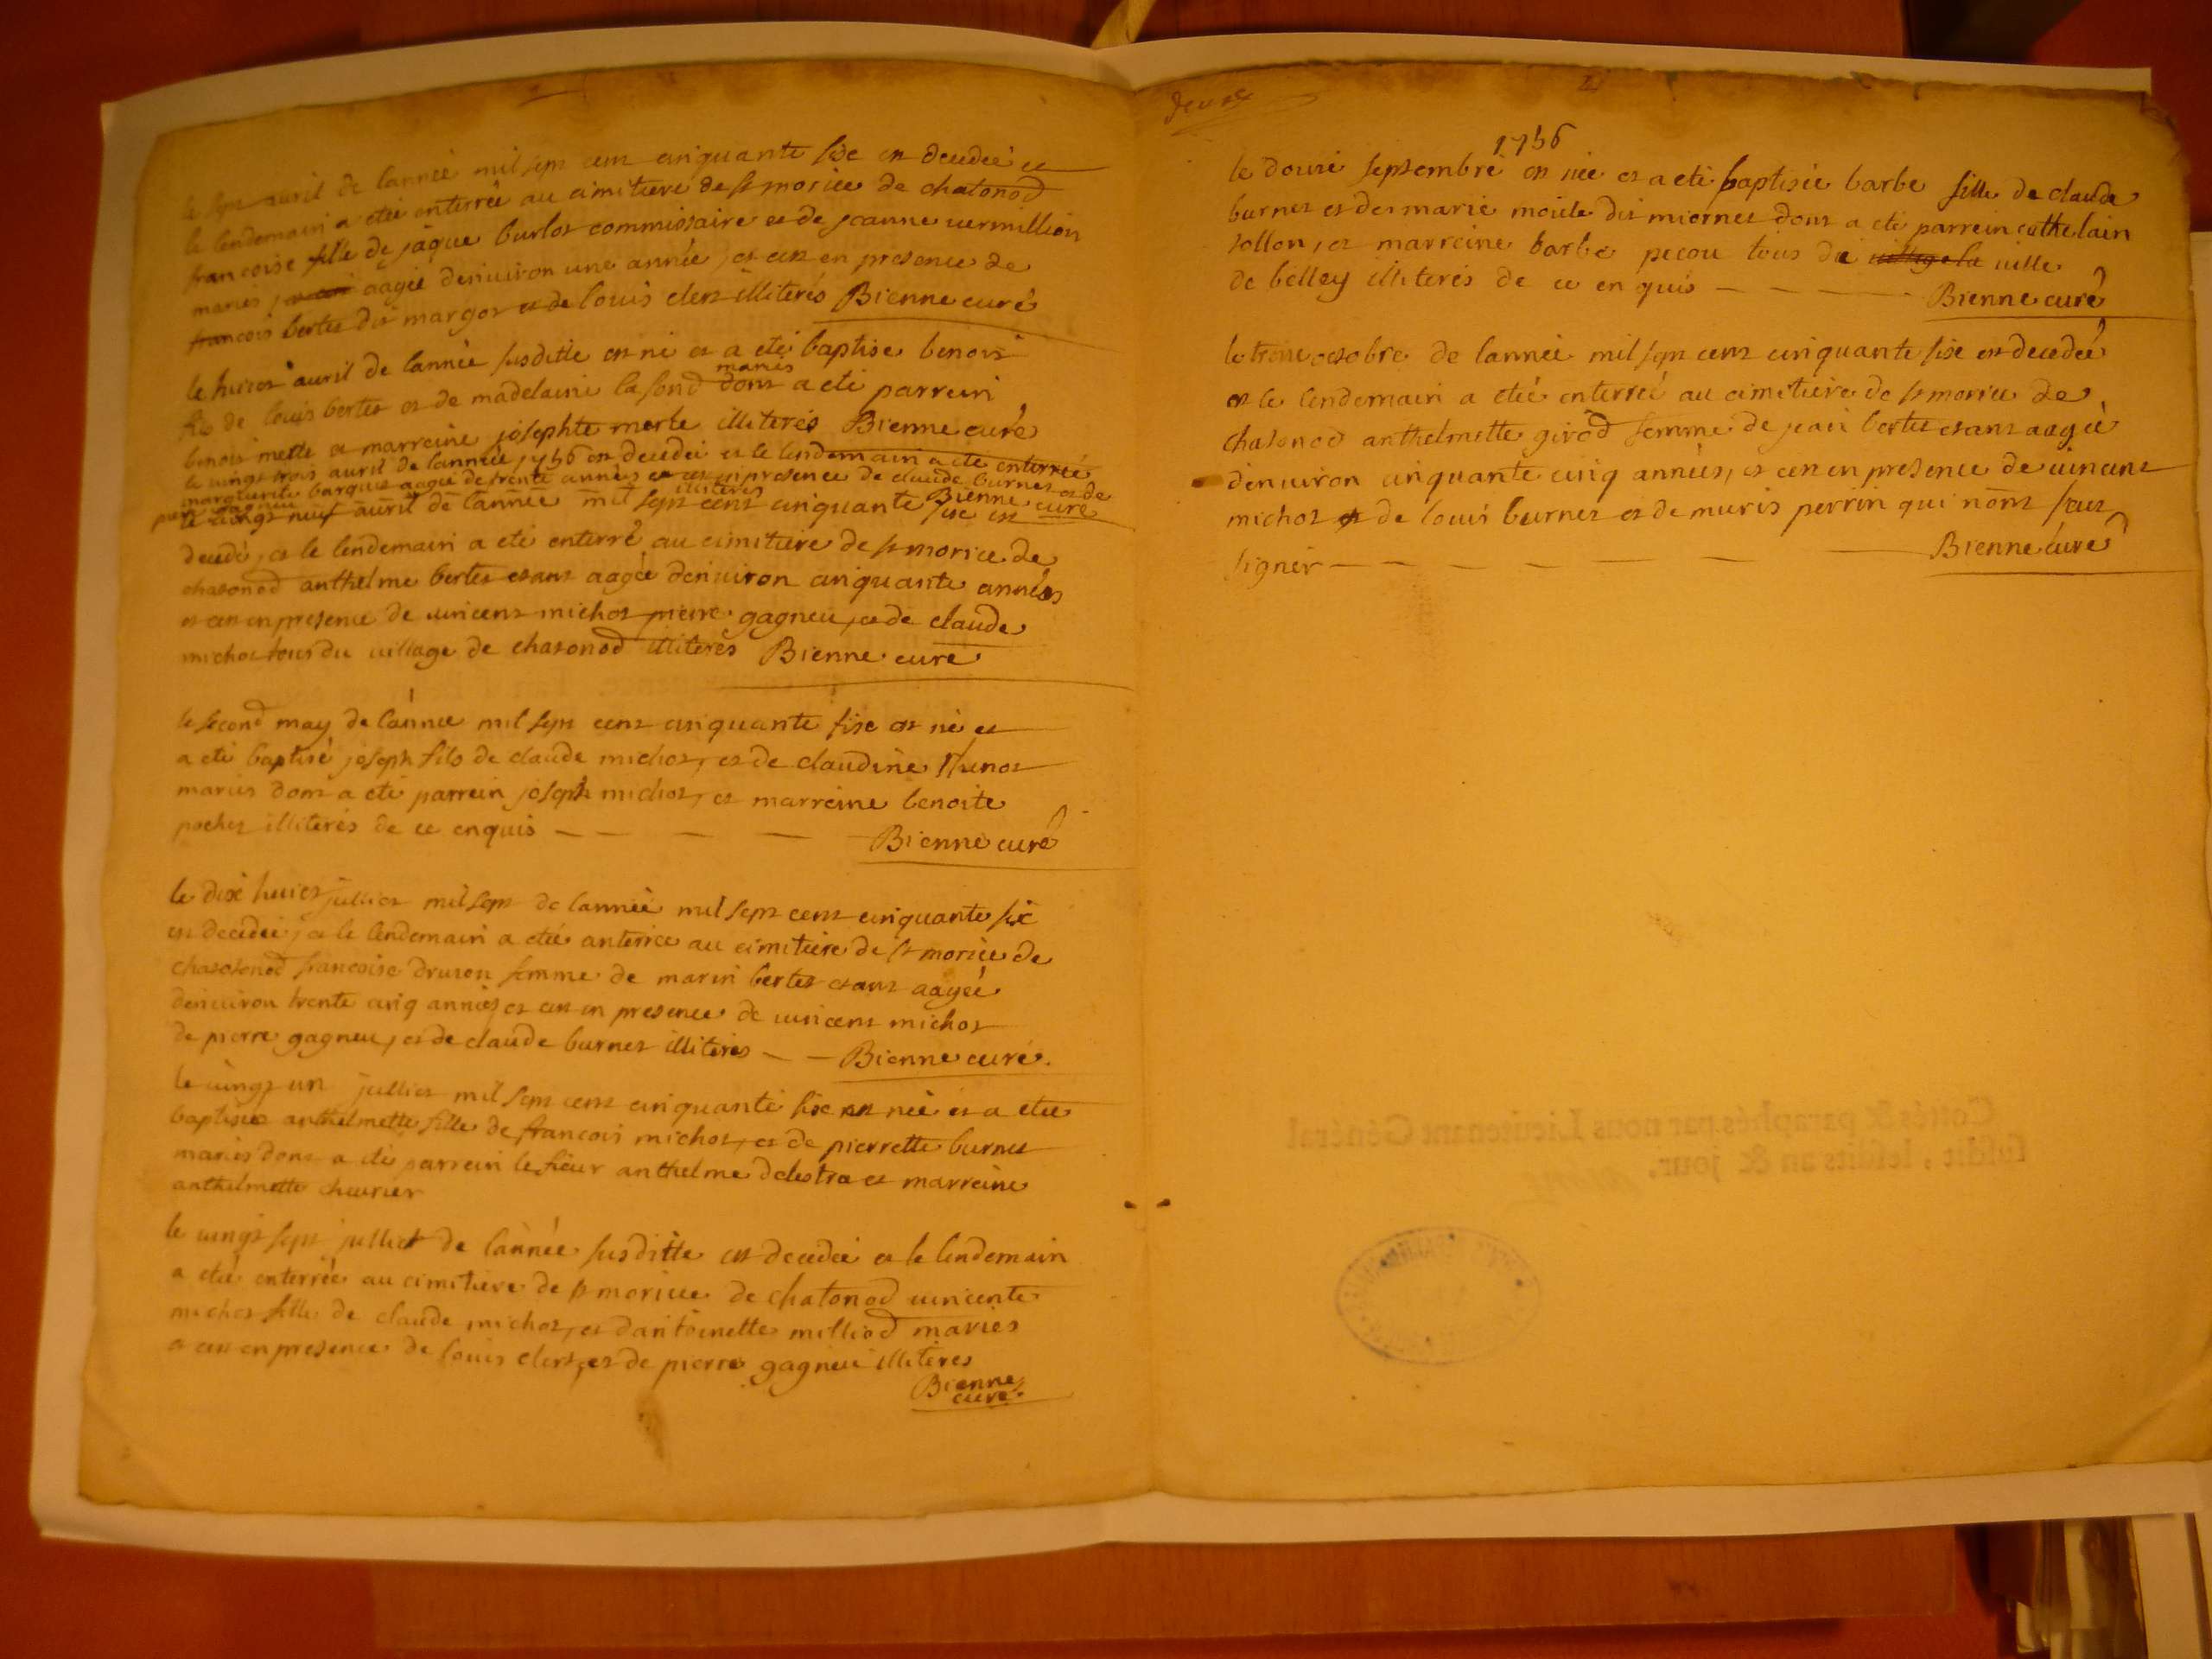 le sept auril de lanneé mil sept cent cinquante sixe est decedeé et
le lendemain a eteé enterreé au cimitiere de st morice de chatonod
francoise fille de jaque burlot commissaire et de jeanne uermillion
mariés, aageé denuiron une anneé, et cest en presence de
francois bertet dit margot et de louis clert illiterés Bienne curé
le huict auril de lanneé susditte est né et a eté baptisé benoit
fils de louis bertet et de madelaine la fond mariés dont a eté parrein
benoit merle et marreine josephte merle illiterés Bienne curé
le uingt trois auril de lanneé 1756 est decedeé et le lendemain a eté enterreé
margueritte barquet aageé de trente anneés et cest en presence de claude burnet et de
pierre gagneu illiterés Bienne curé
le uingt neuf auril de lanneé mil sept cent cinquante sixe est
decedé, et le lendemain a eté enterré au cimitiere de st morice de
chatonod anthelme bertet etant aagéé denuiron cinquante anneés
et cest en presence de uincent michot pierre gagneu, et de claude
michot tous du uillage de chatonod illiterés Bienne curé
le second may de lannee mil sept cent cinquante sixe est né et
a eté baptisé joseph fils de claude michot, et de claudine
mariés dont a eté parrein joseph michot, et marreine benoite
pochet illiterés de ce enquis — — — — Bienne curé
le dixe huict julliet mil sept de lanneé mil sept cent cinquante six
est decedeé, et le lendemain a eteé anterreé au cimitiere de st morice de
chatotonod francoise druton femme de marin bertet etant aageé
denuiron trente cinq anneés et cest en presence de uincent michot
de pierre gagneu, et de claude burnet illiterés — — Bienne curé.
le uingt un julliet mil sept cent cinquante sixe est neé et a eteé
baptiseé anthelmette fille de francois michot, et de pierrette burnet
mariés dont a eté parrein le sieur anthelme delestra et marreine
anthelmette cheurier
le uingt sept julliet de lannée susditte est decedeé et le lendemain
a eteé enterreé au cimitiere de st morice de chatonod uincente
michot fille de claude michot, et dantoinette milliod mariés
et cest en presence de louis clert, et de pierre gagneu illiteres
Bienne
curé.
deuxe
1756
le douzé septembre est neé et a eté baptiseé barbe fille de claude
burnet et de marie moile dit miornet dont a eté parrein cathelain
tollon, et marreine barbe pecou tous de uillage la uille
de belley illiterés de ce enquis — — — — Bienne curé
le treize octobre de lanneé mil sept cent cinquante sixe est decedeé
et le lendemain a eteé enterreé au cimitiere de st morice de
chatonod anthelmette girod femme de jean bertet etant aageé
denuiron cinquante cinq anneés, et cest en presence de uincent
michot et de louis burnet et de muris perrin qui nont sceu
signer — — — — — — Bienne curé
Cottés & paraphés par nous Lieutenant Général
susdit, lesdits an & jour.